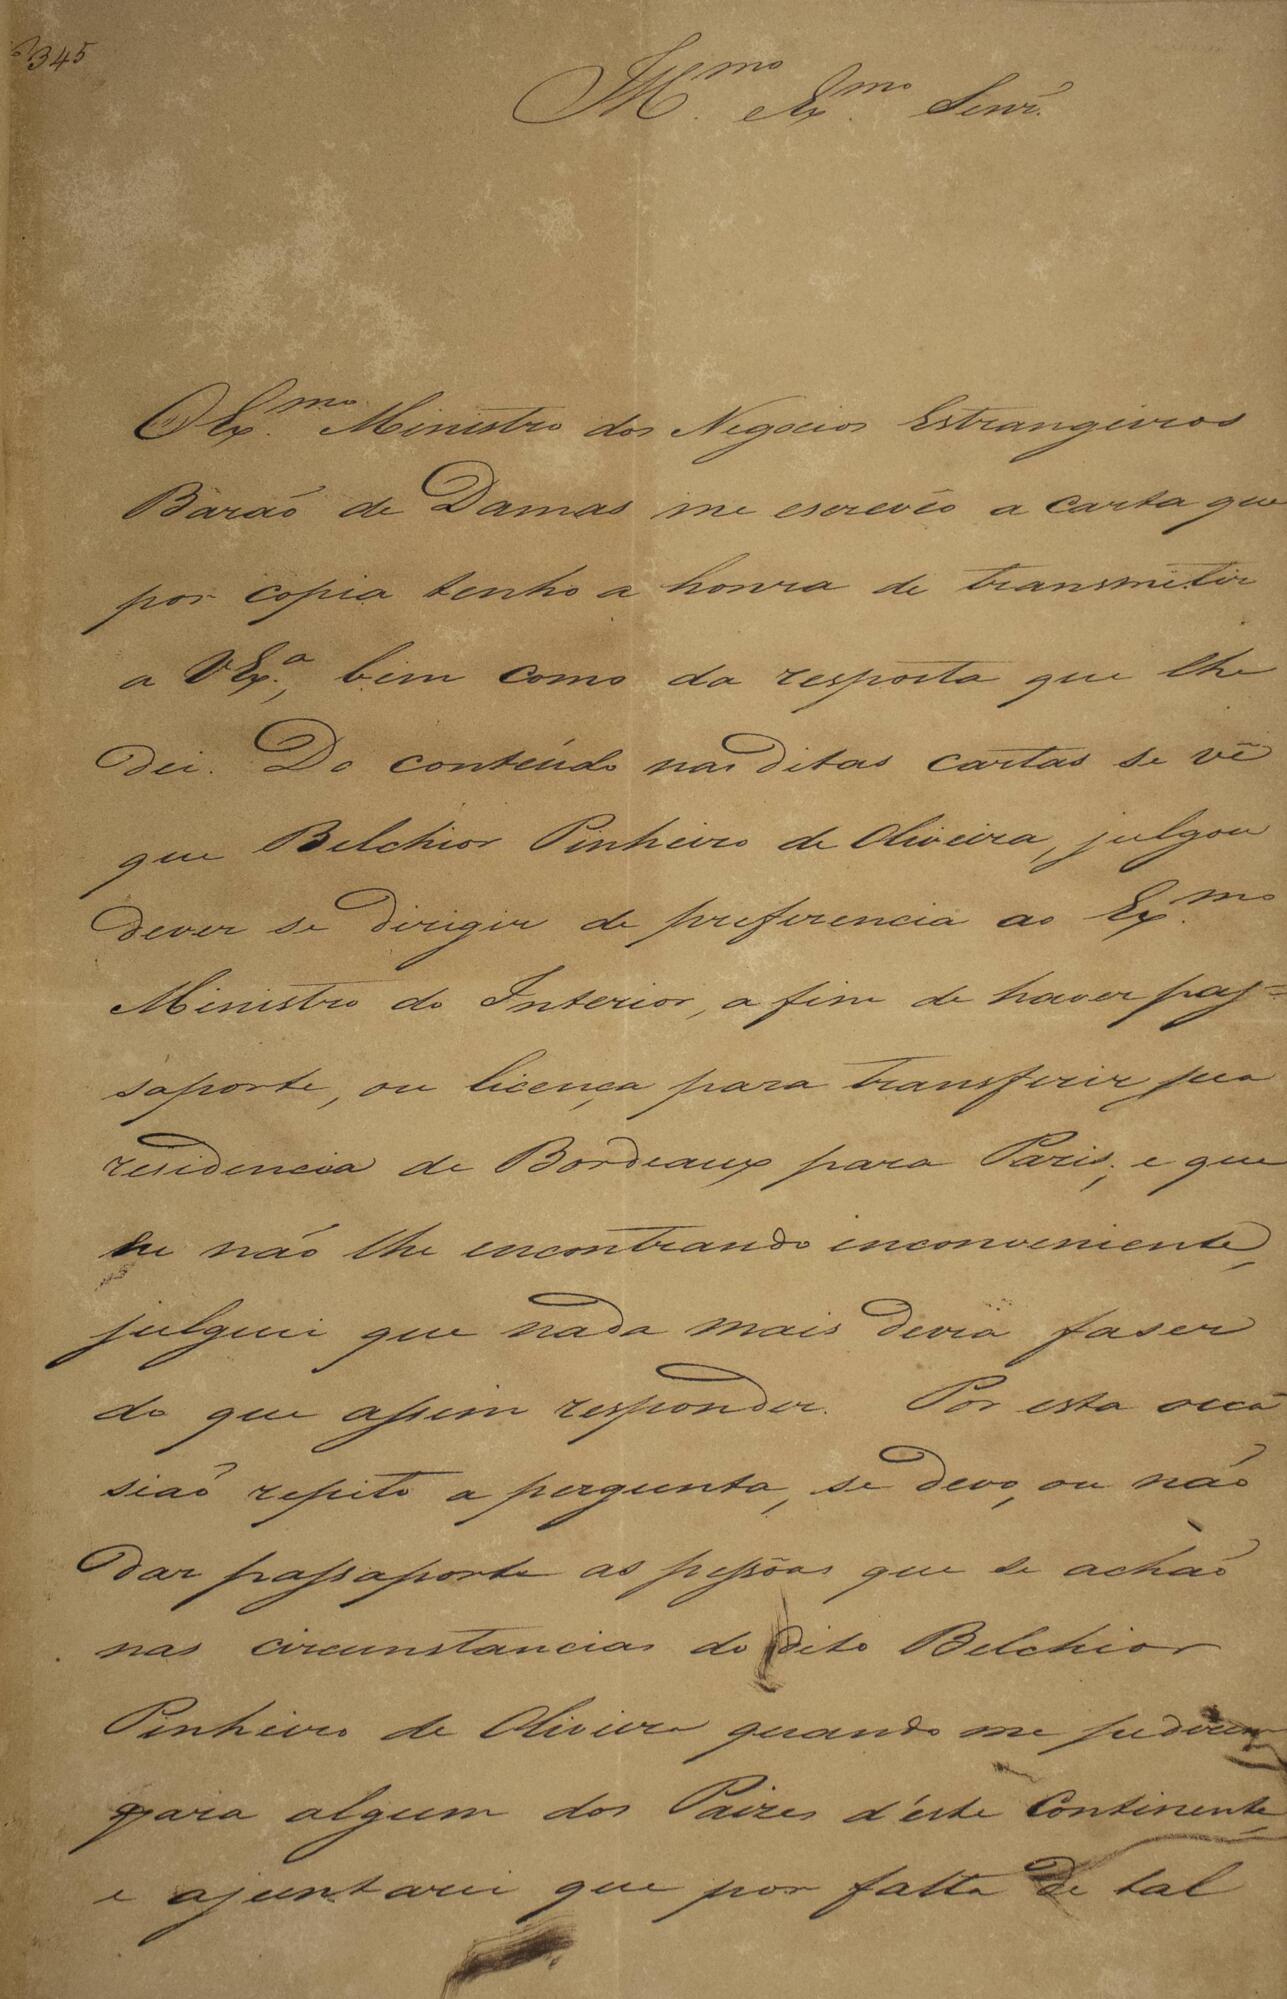 345
Ill.mo Ex.mo Senr.
O Ex.mo Ministro dos Negocios Estrangeiros
Baraõ de Damas me escrevêo a carta que
por copia tenho a honra de transmetir
a VEx.a, bem como da resposta que lhe
dei. Do contéudo nas ditas cartas se vê
que Belchior Pinheiro de Oliveira, julgou
dever se dirigir de preferencia ao Ex.mo
Ministro do Interior, a fim de haver pas=
saporte, ou licença para transferir sua
residencia de Bordeaux para Paris, e que
eu não lhe encontrando inconveniente,
julguei que nada mais devia faser
do que assim responder. Por esta occa
siaõ repito a pergunta, se devo, ou não
dar passaporte as pessôas que se achaõ
nas circunstancias do dito Belchior
Pinheiro de Oliveira quando me pedirem
para algum dos Paizes d'este Continente,
e ajuntarei que por falta de tal